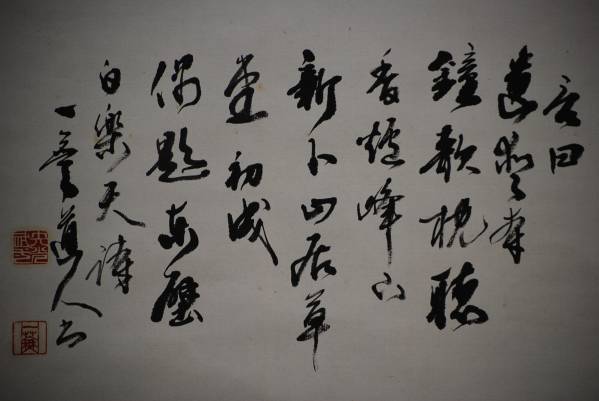 遺愛寺
鐘欹枕聽
香爐峰下
新卜山居草
堂初成
偶題東壁
白樂天詩
道人書